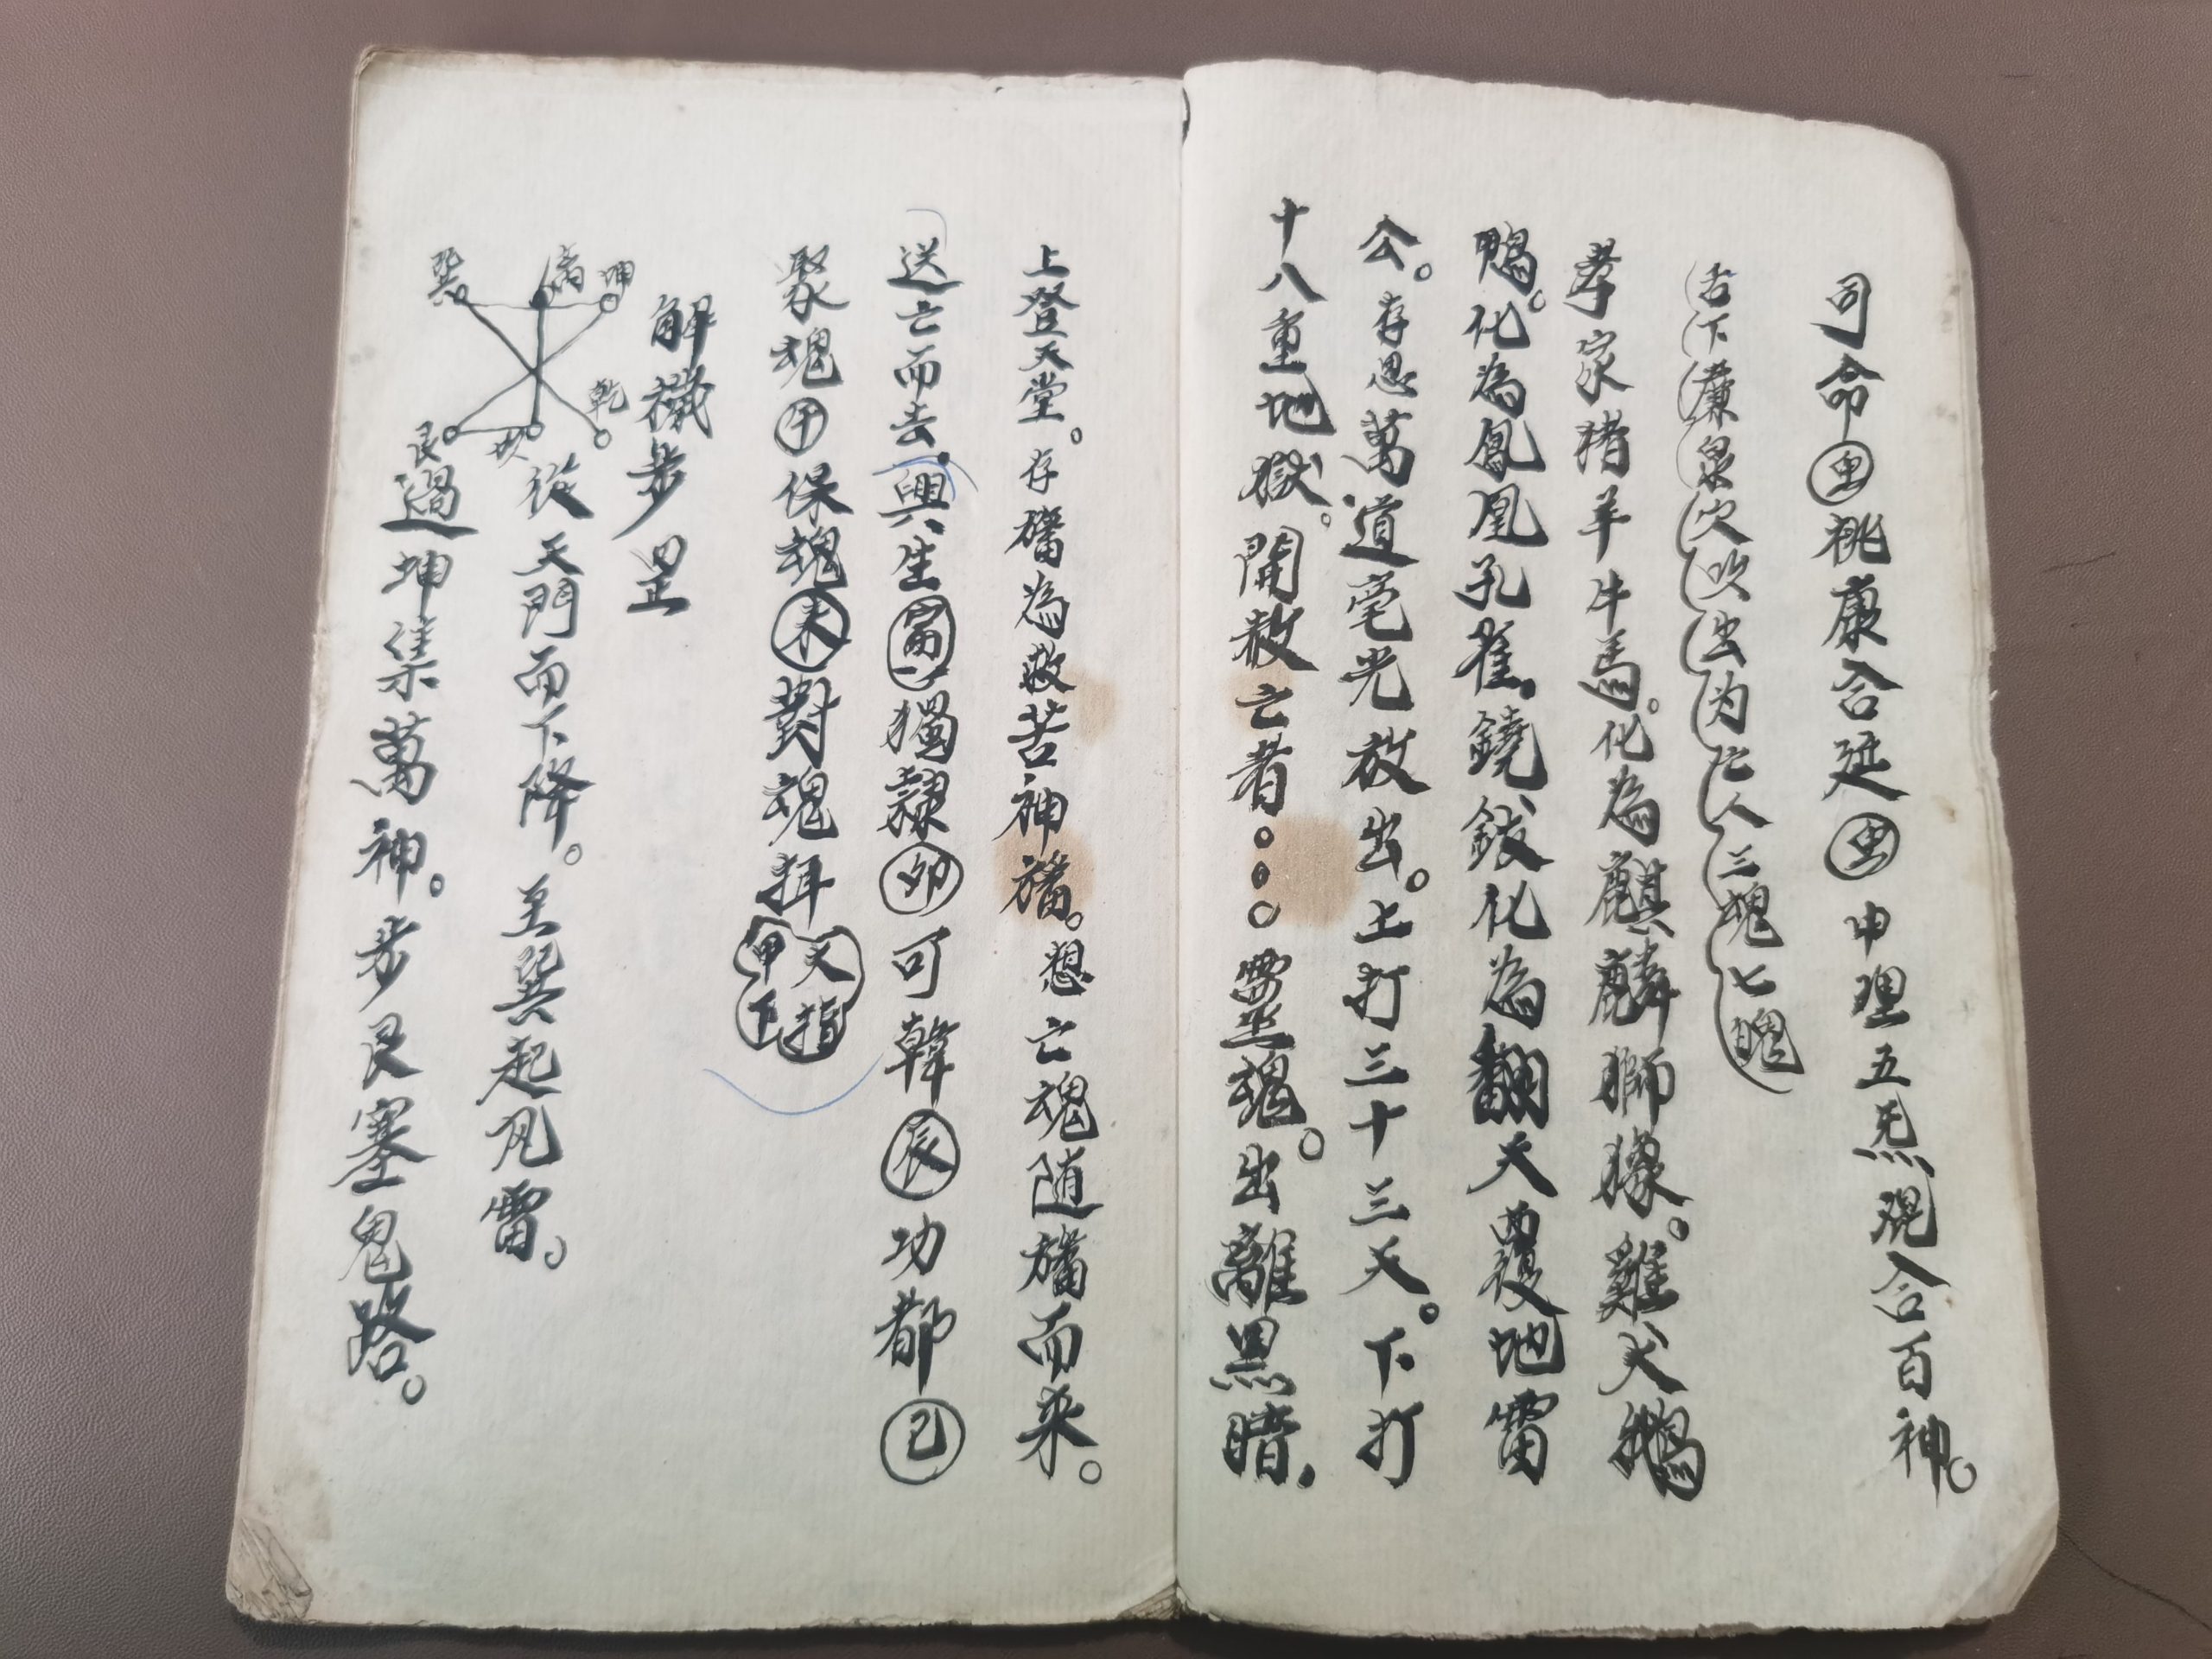 司命㊥桃康合延㊥中理五炁混合百神。
舌下廉泉穴吹出为亡人三魂七魄
孝家猪羊牛馬。化為麒麟獅㺔。雞犬鵝
鴨。化為鳳凰孔雀。鐃鈸化為翻天覆地雷
公。存思萬道毫光放出。上打三十三天。下打
十八重地獄。開赦亡者。。。。靈魂。出離黑暗。
上登天堂。存旛為救苦神旛。想亡魂随旛而来。
送亡而去。興生寅獨隸卯可韓辰功都巳
聚魂午保魂未對魂
甲下
文指
解穢步罡
巽 离 坤
乾
艮 坎
從天門而下降。至巽起风雷。
過坤集萬神。步艮塞鬼路。